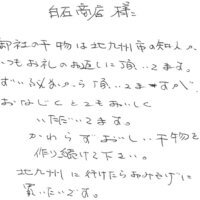 白石商店 様に
御社の干物は北九州市の知人から
いつもお礼のお返しに頂いてます。
頂いてますが
おなじくとてもおいしく
いただいてます。
かわらずおいしい干物を
作り続けて下さい。
北九州に行けたらおみやげに
買いたいです。